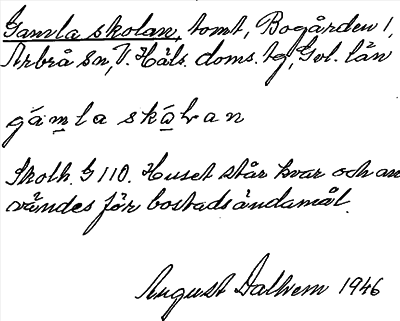 Gamla skolan, tomt, Bogården 1,
Arbrå sn, V. Häls. doms. tg, Gvl. län
gám̲la skò̲lan
Skolh. G 110. Huset står kvar och an
vändes för bostadsändamål.
August Dalhem 1946